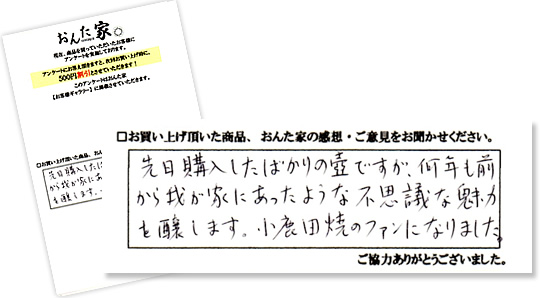 おんた家
現在、商品を買っていただいたお客様に
アンケートを実施しております。
アンケートにお答え頂きますと、次回お買い上げ時に、
500円割引とさせていただきます!
このアンケートはおんた家
【お客様ギャラリー】に掲載させていただきます。
□お買い上げ頂いた商品、おんた
先日購入し
から我が家にあ
を醸します。
□お買い上げ頂いた商品、おんた家の感想・ご意見をお聞かせください。
先日購入したばかりの壺ですが、何年も前
から我が家にあったような不思議な魅力
を醸します。小鹿田焼のファンになりました。
ご協力ありがとうございました。